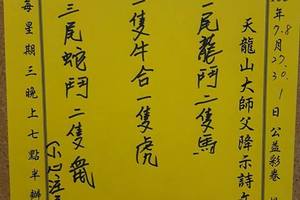 7月27.30.1日公益彩卷
7.8
天龍山大師父降示詩
一尾龍鬥二隻馬
一隻牛合一隻虎
三尾蛇鬥二隻鼠
小心注
每星期三晚上七點半辦